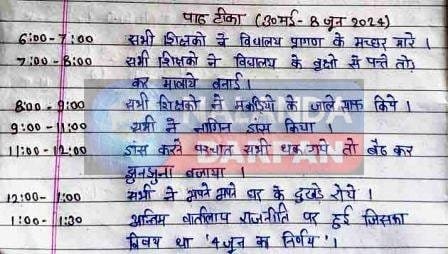 पाठ टीका (30 मई - 8 जून 2024)
6:00-7:00 सभी शिक्षकों ने विद्यालय प्रागण के मच्छर मारे ।
7:00-8:00 सभी शिक्षकों ने विद्यालय के वृक्षो से पत्ते तो
कर मालाये बनाई ।
8:00-9:00 सभी शिक्षकों ने मकडियो के जाले साफ किये ।
9:00-11:00 सभी ने नागिन डांस किया ।
11:00-12:00 डांस करने पश्चात सभी थक गये तो बैठ कर
झुनझुना बजाया ।
12:00-1:00 सभी ने अपने अपने घर के दुखड़े रोये ।
1:00-1:30 अन्तिम वार्तालाप राजनीति पर हुई जिसका
विषय था '4 जून का निर्णय' ।
NALANDA
DARPAN